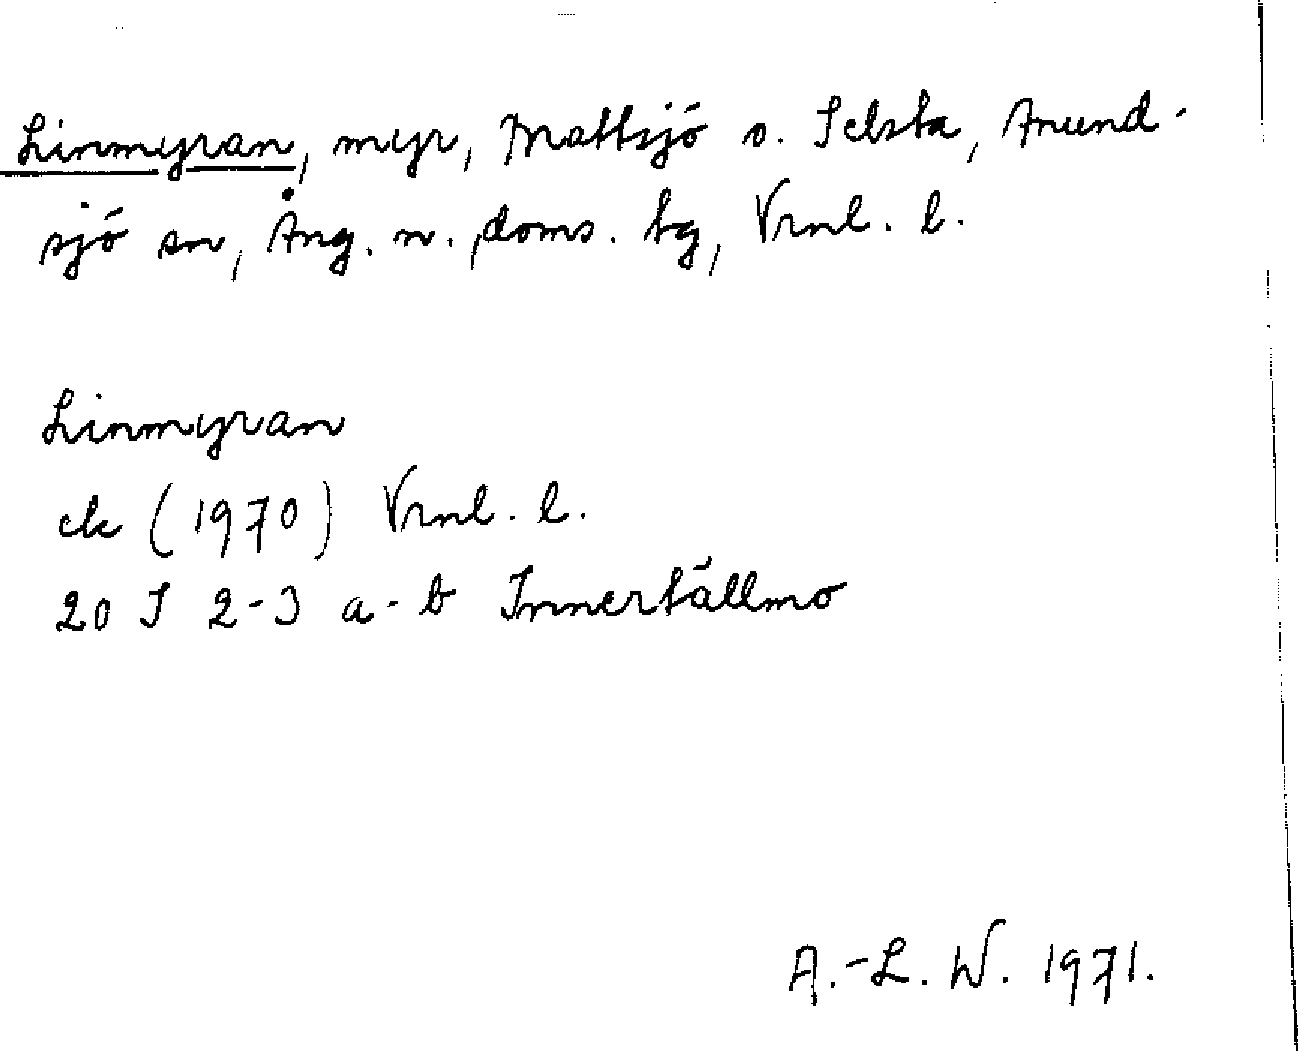 Linmyran, myr, Mattsjö o. Selsta, Anund-
sjö sn, Ång. n. doms. tg, Vrml. l.
Linmyran
ek (1970) Vrml. l.
20 I 2-3 a-b Innertällmo
A.-L. W. 1971.